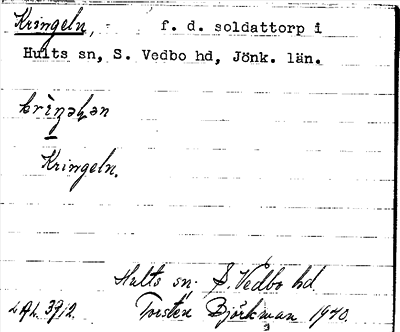 Kringeln, f. d. soldattorp i
Hults sn, S. Vedbo hd, Jönk. län.
Kringeln.
Hults sn. S. Vedbo hd.
Torsten Björkman 1940.